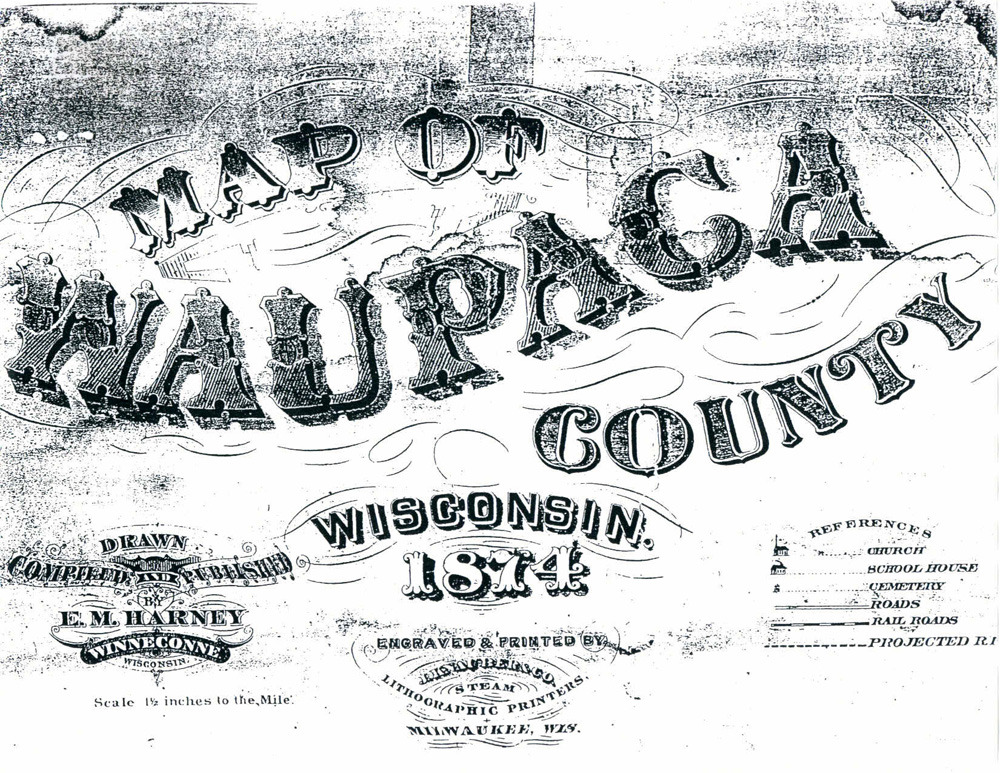 MAP OF
WAUPACA
COUNTY
WISCONSIN.
1874
DRAWN
COMPILED AND PUBLISHED
BY
E. M. HARNEY
WINNECONNE
WISCONSIN.
Scale 1½ inches to the Mile.
ENGRAVED & PRINTED BY
& CO.
STEAM
LITHOGRAPHIC PRINTERS.
MILWAUKEE, WIS.
REFERENCES
CHURCH
SCHOOL HOUSE
CEMETERY
ROADS
RAIL ROADS
PROJECTED R